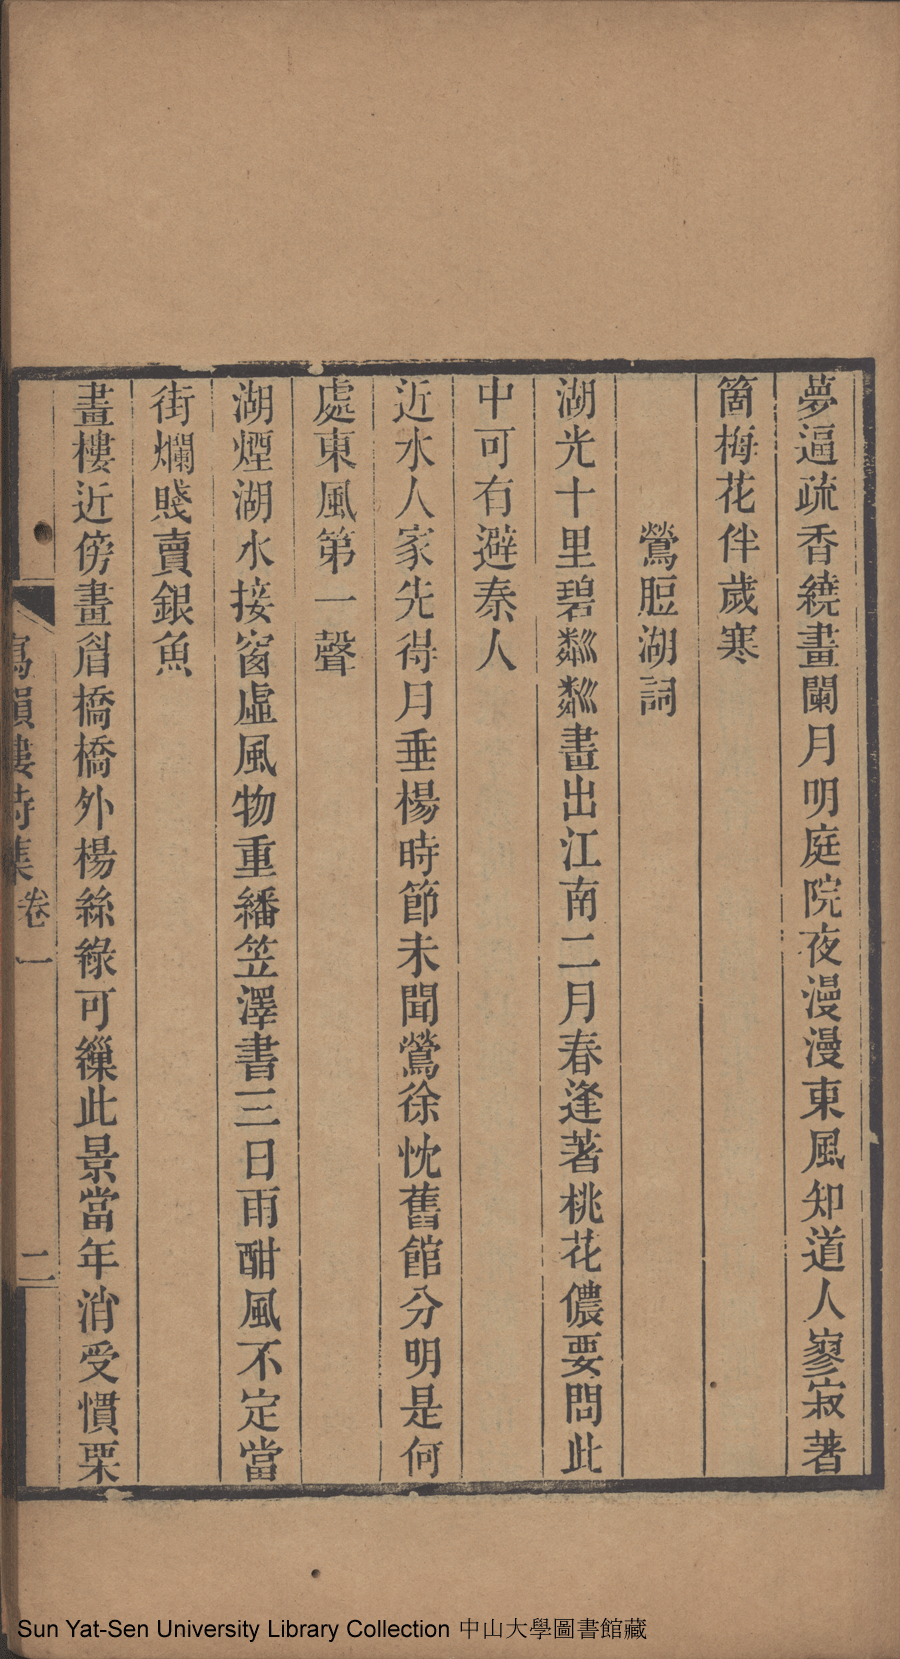 夢逼疏香繞畫闌月明庭院夜漫漫東風知道人寥寂著
箇梅花伴歲寒
鶯脰湖詞
湖光十里碧粼粼畫出江南二月春逢著桃花儂要問此
中可有避秦人
近水人家先得月垂楊時節未聞鶯徐忱舊館分明是何
處東風第一聲
湖煙湖水接窗虛風物重繙笠澤書三日雨酣風不定當
街爛賤賣銀魚
畫樓近傍畫眉橋橋外楊絲綠可繅此景當年消受慣栗
寫韻樓詩集 卷一 二
Sun Yat-Sen University Library Collection 中山大學圖書館藏